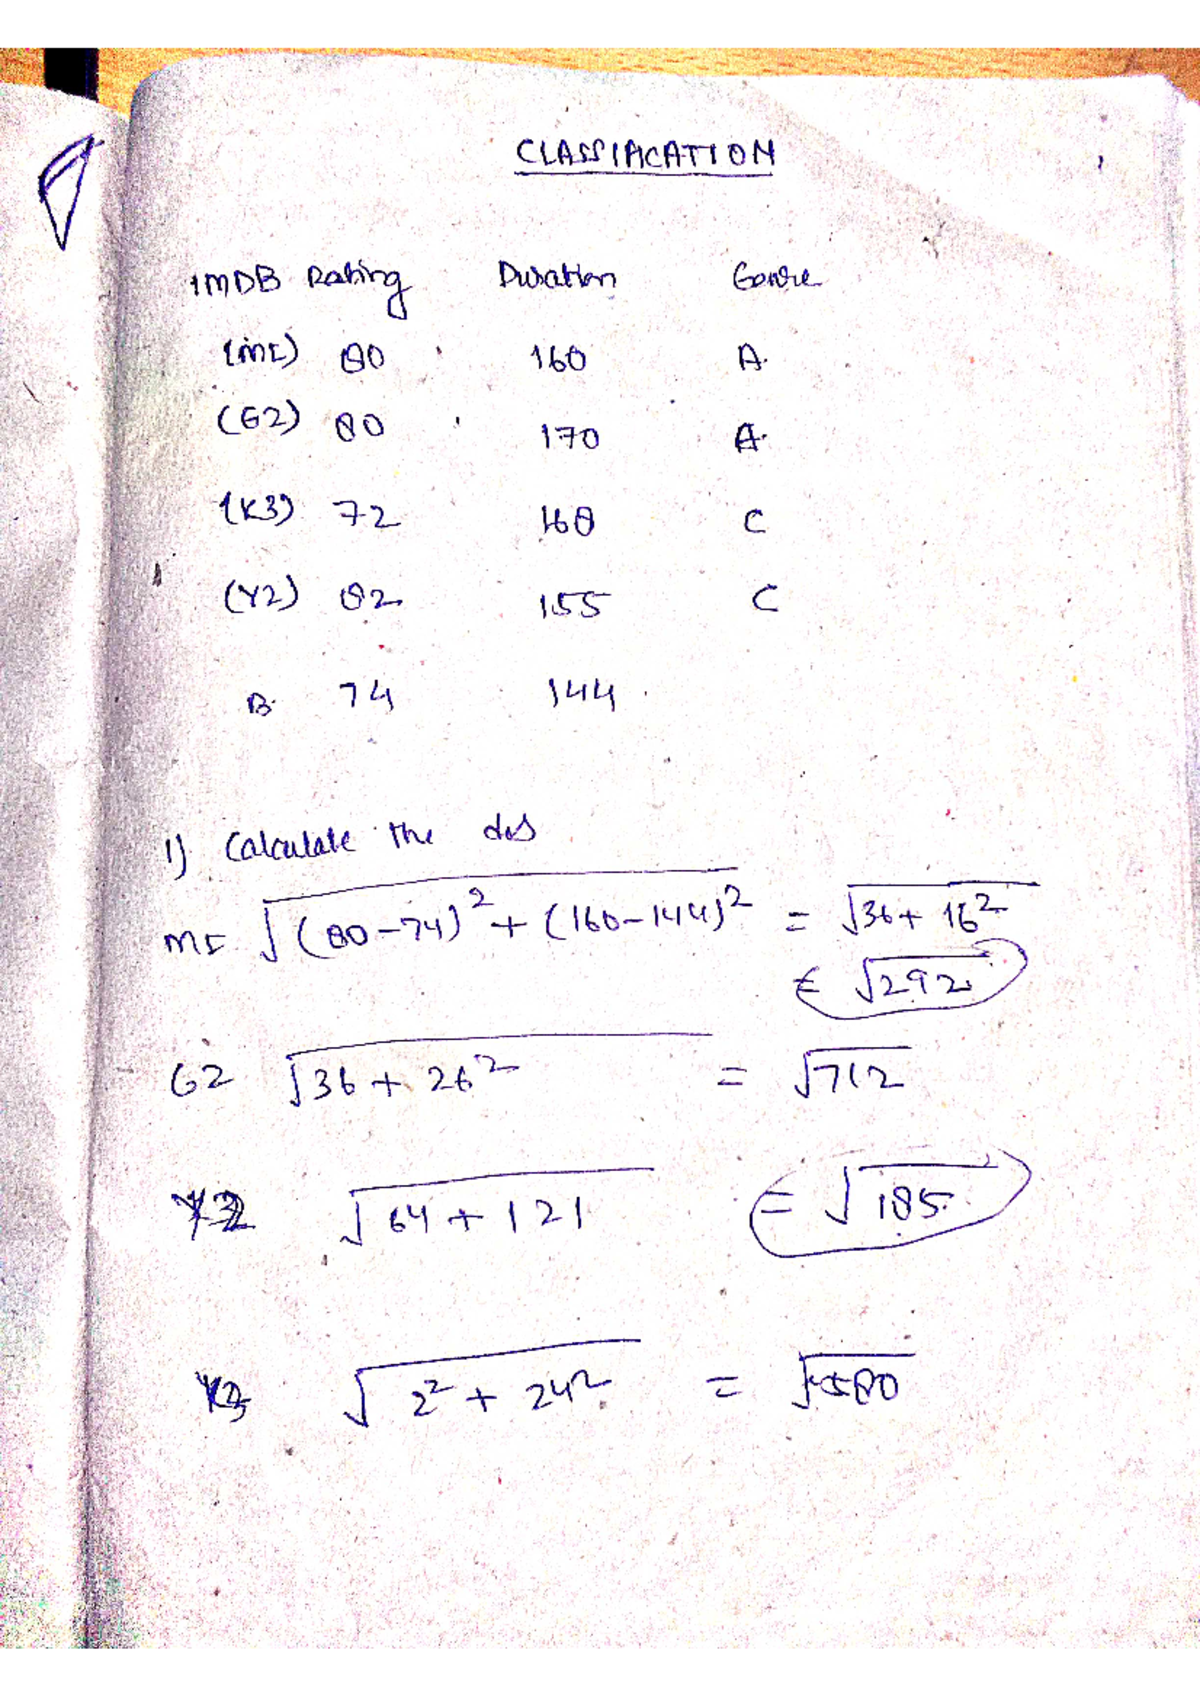 CLASSIFICATION
IMDB Rating Duration Genre
(MI) 80 160 A.
(G2) 80 170 A.
(K3) 72 168
C
(Y2) 82 155 C
B. 74 144
1) Calculate the dis
MI √(80-74)² + (160-144)² = √36 + 16²
= √292
G2 √36 + 26² = √712
Y2 √64 + 121 = √185
K3 √2² + 24² = √580